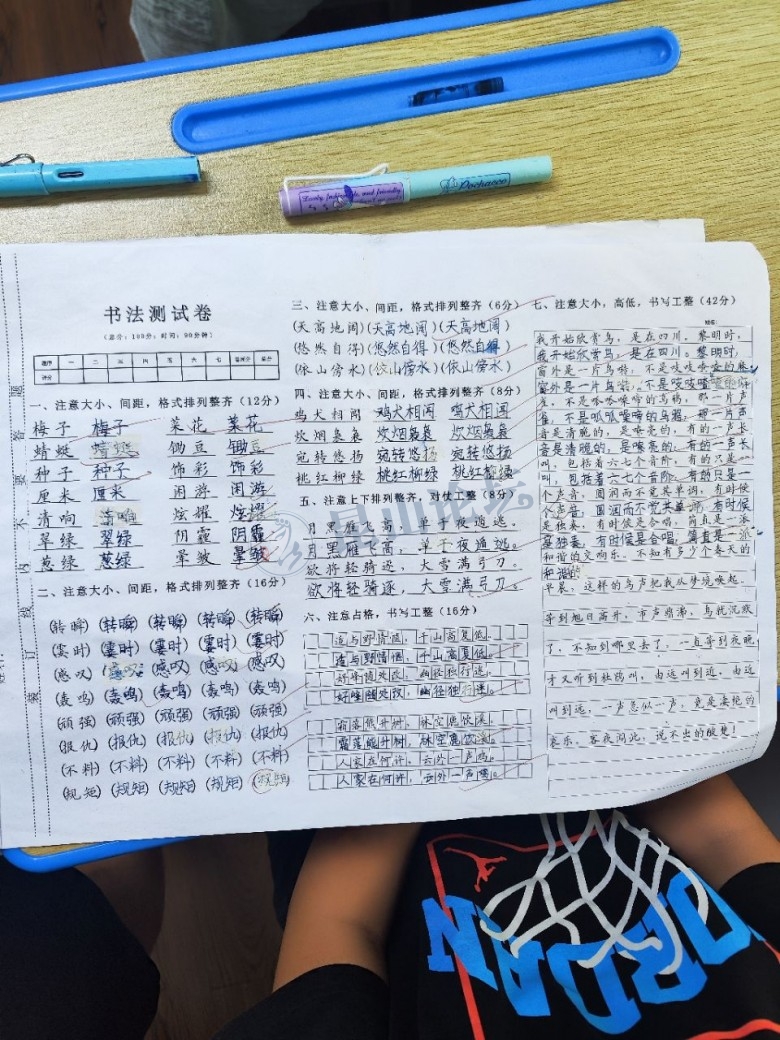 书法测试卷
(总分:100分;时间:90分钟)
一、注意大小、间距,格式排列整齐(12分)
梅子 梅子 菜花 菜花
蜻蜓 蜻蜓 锄豆 锄豆
种子 种子 饰彩 饰彩
厘米 厘米 闲游 闲游
清响 清响 炫耀 炫耀
翠绿 翠绿 阴霾 阴霾
葱绿 葱绿 晕皴 晕皴
二、注意大小、间距,格式排列整齐(16分)
(转瞬) (转瞬) (转瞬) (转瞬) (转瞬)
(霎时) (霎时) (霎时) (霎时) (霎时)
(感叹) (感叹) (感叹) (感叹) (感叹)
(轰鸣) (轰鸣) (轰鸣) (轰鸣) (轰鸣)
(顽强) (顽强) (顽强) (顽强) (顽强)
(报仇) (报仇) (报仇) (报仇) (报仇)
(不料) (不料) (不料) (不料) (不料)
(规矩) (规矩) (规矩) (规矩) (规矩)
三、注意大小、间距,格式排列整齐(6分)
(天高地阔)(天高地阔)(天高地阔)
(悠然自得)(悠然自得)(悠然自得)
(依山傍水)(依山傍水)(依山傍水)
四、注意大小、间距,格式排列整齐(8分)
鸡犬相闻 鸡犬相闻 鸡犬相闻
炊烟袅袅 炊烟袅袅 炊烟袅袅
宛转悠扬 宛转悠扬 宛转悠扬
桃红柳绿 桃红柳绿 桃红柳绿
五、注意上下排列整齐,对仗工整(8分)
月黑雁飞高,单于夜遁逃。
月黑雁飞高,单于夜遁逃。
欲将轻骑逐,大雪满弓刀。
欲将轻骑逐,大雪满弓刀。
六、注意占格,书写工整(16分)
适与野情惬,千山高复低。
适与野情惬,千山高复低。
好峰随处改,幽径独行迷。
好峰随处改,幽径独行迷。
霜落熊升树,林空鹿饮溪。
霜落熊升树,林空鹿饮溪。
人家在何许,云外一声鸡。
人家在何许,云外一声鸡。
七、注意大小,高低,书写工整(42分)
我开始欣赏鸟,是在四川。黎明时,
我开始欣赏鸟,是在四川。黎明时,
窗外是一片鸟啭,不是吱吱喳喳的麻
窗外是一片鸟啭,不是吱吱喳喳的麻
雀,不是呱呱噪啼的乌鸦,那一片声
雀,不是呱呱噪啼的乌鸦,那一片声
音是清脆的,是嘹亮的,有的一声长
音是清脆的,是嘹亮的,有的一声长
叫,包括着六七个音阶,有的只是一
叫,包括着六七个音阶,有的只是一
个声音,圆润而不觉其单调,有时候
个声音,圆润而不觉其单调,有时候
是独奏,有时候是合唱,简直是一派
是独奏,有时候是合唱,简直是一派
和谐的交响乐。不知有多少个春天的
和谐的
早晨,这样的鸟声把我从梦境唤起。
等到旭日高升,市声鼎沸,鸟就沉默
了,不知到哪里去了。一直等到夜晚,
才又听到杜鹃叫,由远叫到近,由近
叫到远,一声急似一声,竟是凄绝的
哀乐。客夜闻此,说不出的酸楚!
昆山论坛
Pochacco